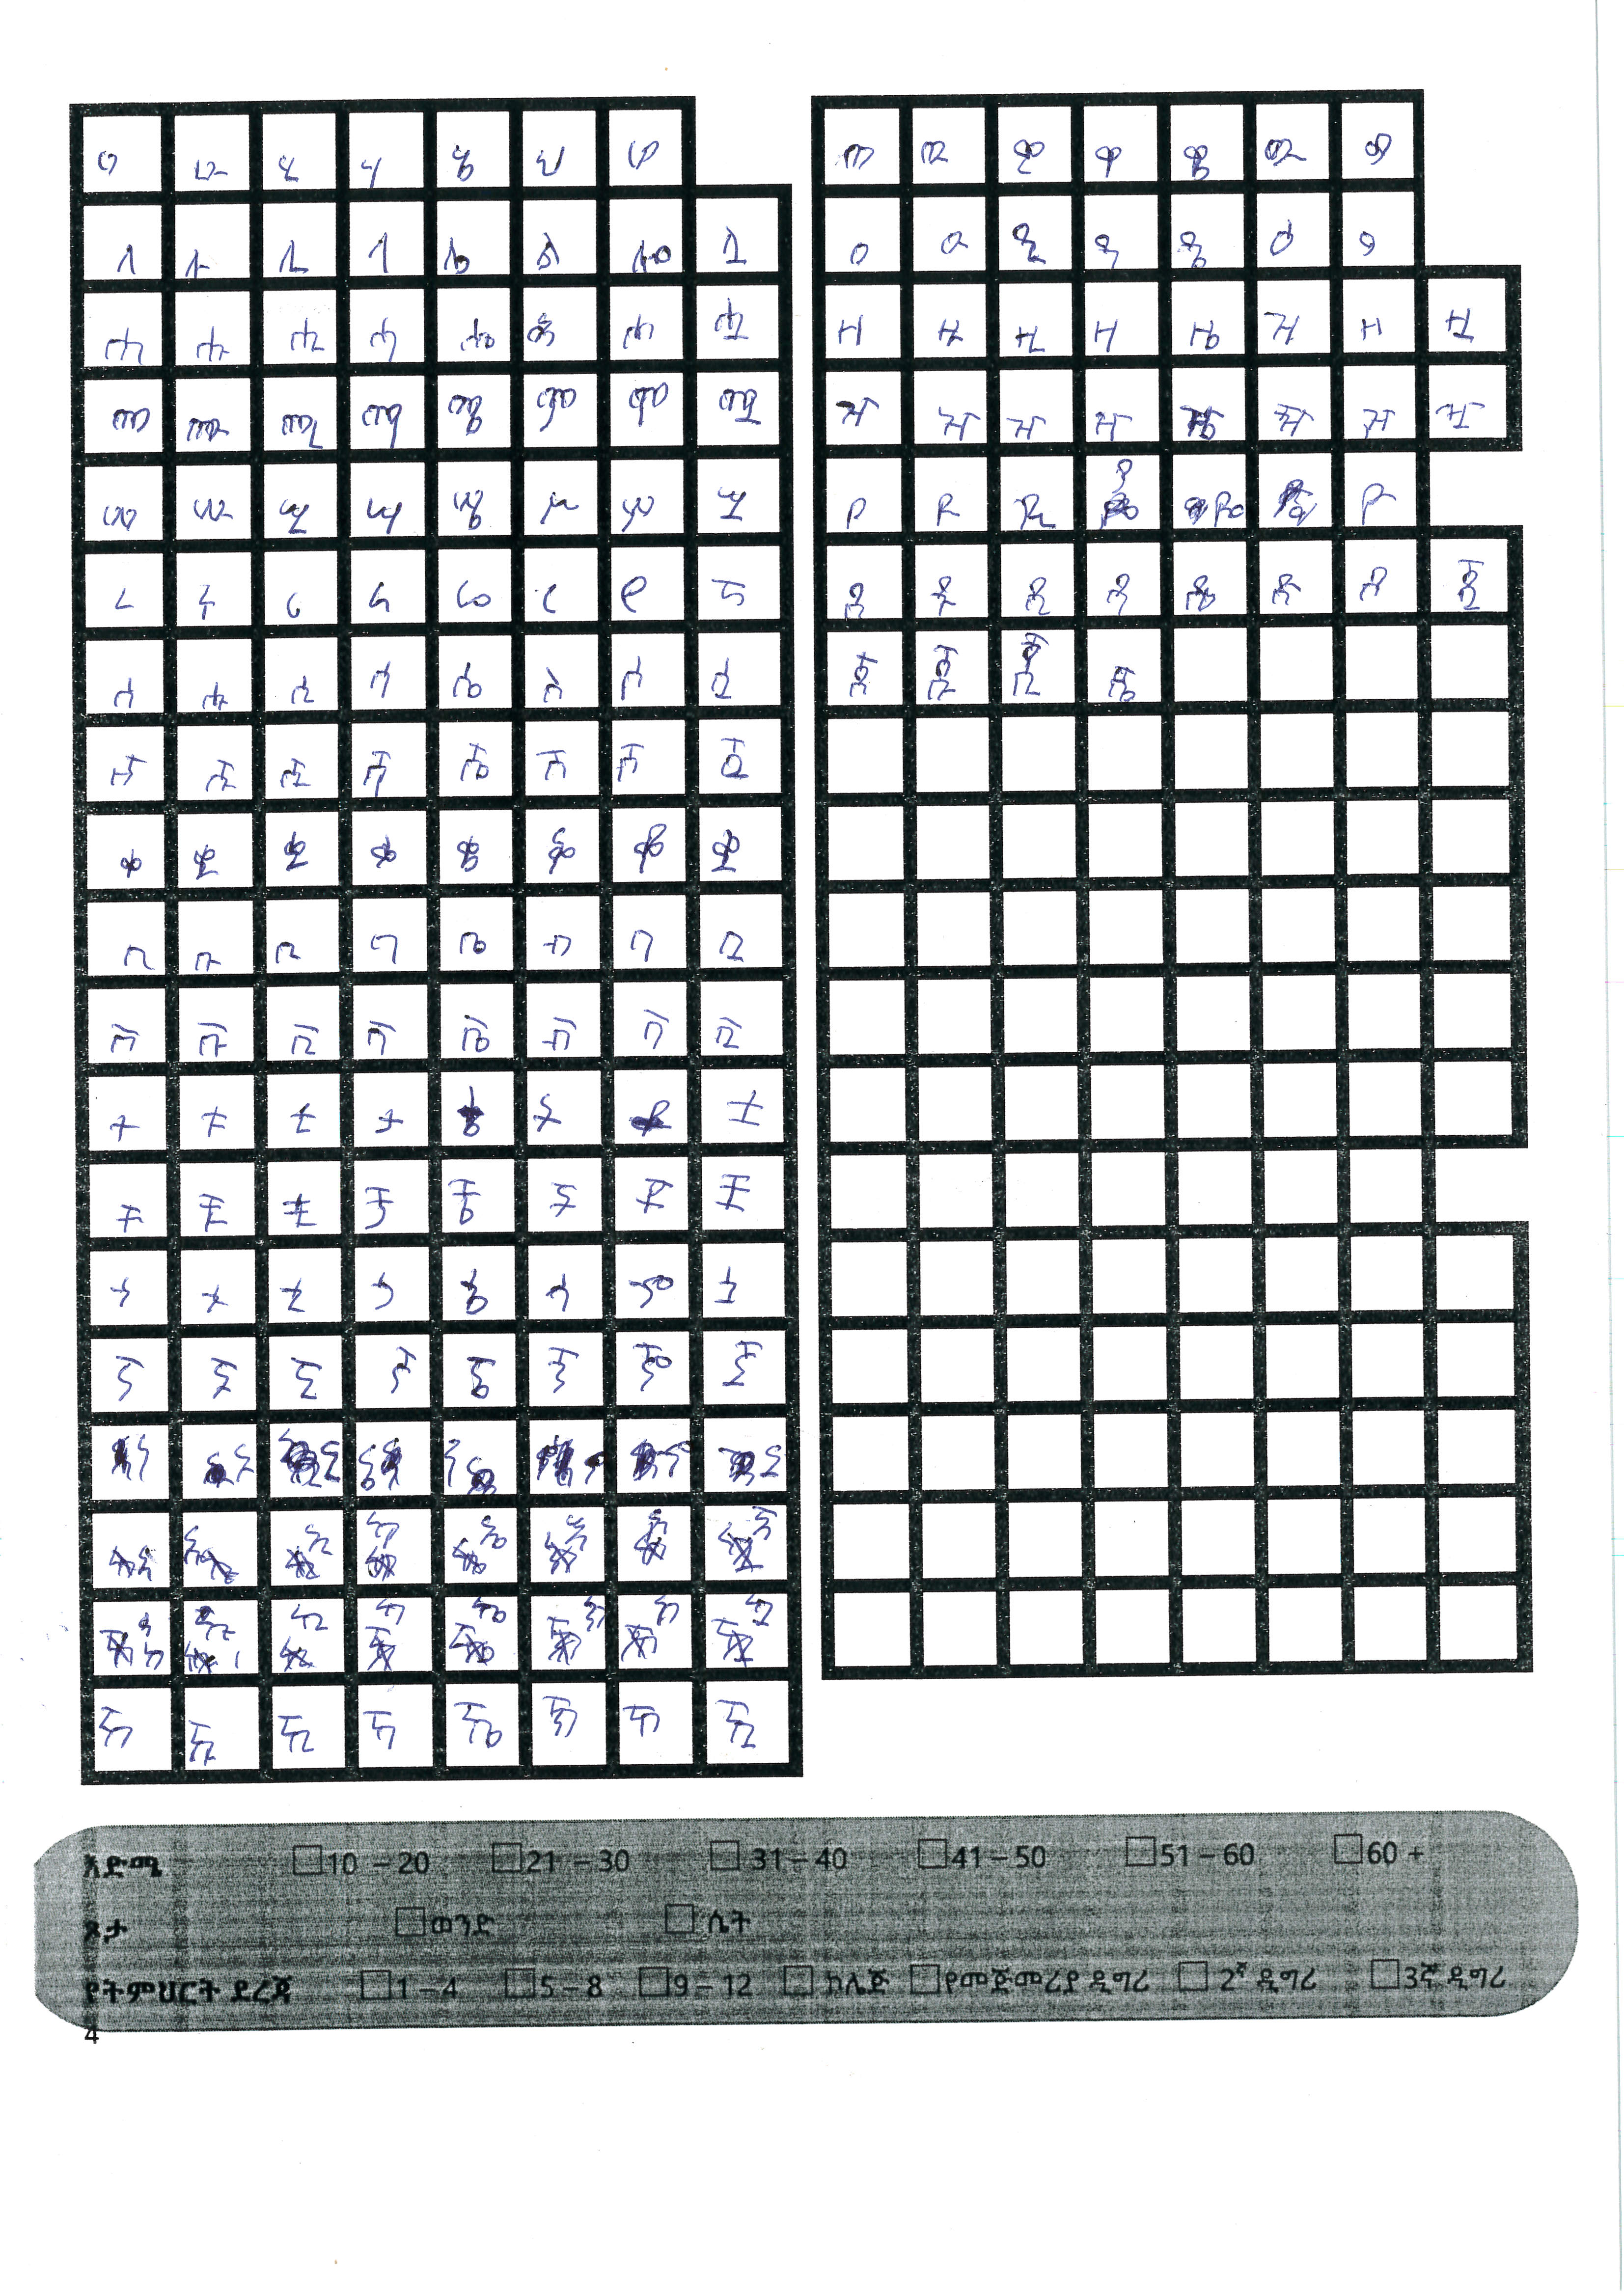 ሀ ሁ ሂ ሃ ሄ ህ ሆ
ለ ሉ ሊ ላ ሌ ል ሎ ሏ
ሐ ሑ ሒ ሓ ሔ ሕ ሖ ሗ
መ ሙ ሚ ማ ሜ ም ሞ ሟ
ሠ ሡ ሢ ሣ ሤ ሥ ሦ ሧ
ረ ሩ ሪ ራ ሬ ር ሮ ሯ
ሰ ሱ ሲ ሳ ሴ ስ ሶ ሷ
ሸ ሹ ሺ ሻ ሼ ሽ ሾ ሿ
ቀ ቁ ቂ ቃ ቄ ቅ ቆ ቋ
በ ቡ ቢ ባ ቤ ብ ቦ ቧ
ቨ ቩ ቪ ቫ ቬ ቭ ቮ ቯ
ተ ቱ ቲ ታ ቴ ት ቶ ቷ
ቸ ቹ ቺ ቻ ቼ ች ቾ ቿ
ነ ኑ ኒ ና ኔ ን ኖ ኗ
ኘ ኙ ኚ ኛ ኜ ኝ ኞ ኟ
ኸ ኹ ኺ ኻ ኼ ኽ ኾ ዃ
ወ ዉ ዊ ዋ ዌ ው ዎ
ዐ ዑ ዒ ዓ ዔ ዕ ዖ
ዘ ዙ ዚ ዛ ዜ ዝ ዞ ዟ
ዠ ዡ ዢ ዣ ዤ ዥ ዦ ዧ
የ ዩ ዪ ያ ዬ ይ ዮ
ደ ዱ ዲ ዳ ዴ ድ ዶ ዷ
ጀ ጁ ጂ
እድሜ 10 – 20 21 – 30 31 – 40 41 – 50 51 – 60 60 +
ጾታ ወንድ ሴት
የትምህርት ደረጃ 1 – 4 5 – 8 9 – 12 ኮሌጅ የመጀመሪያ ዲግሪ 2ኛ ዲግሪ 3ኛ ዲግሪ
4